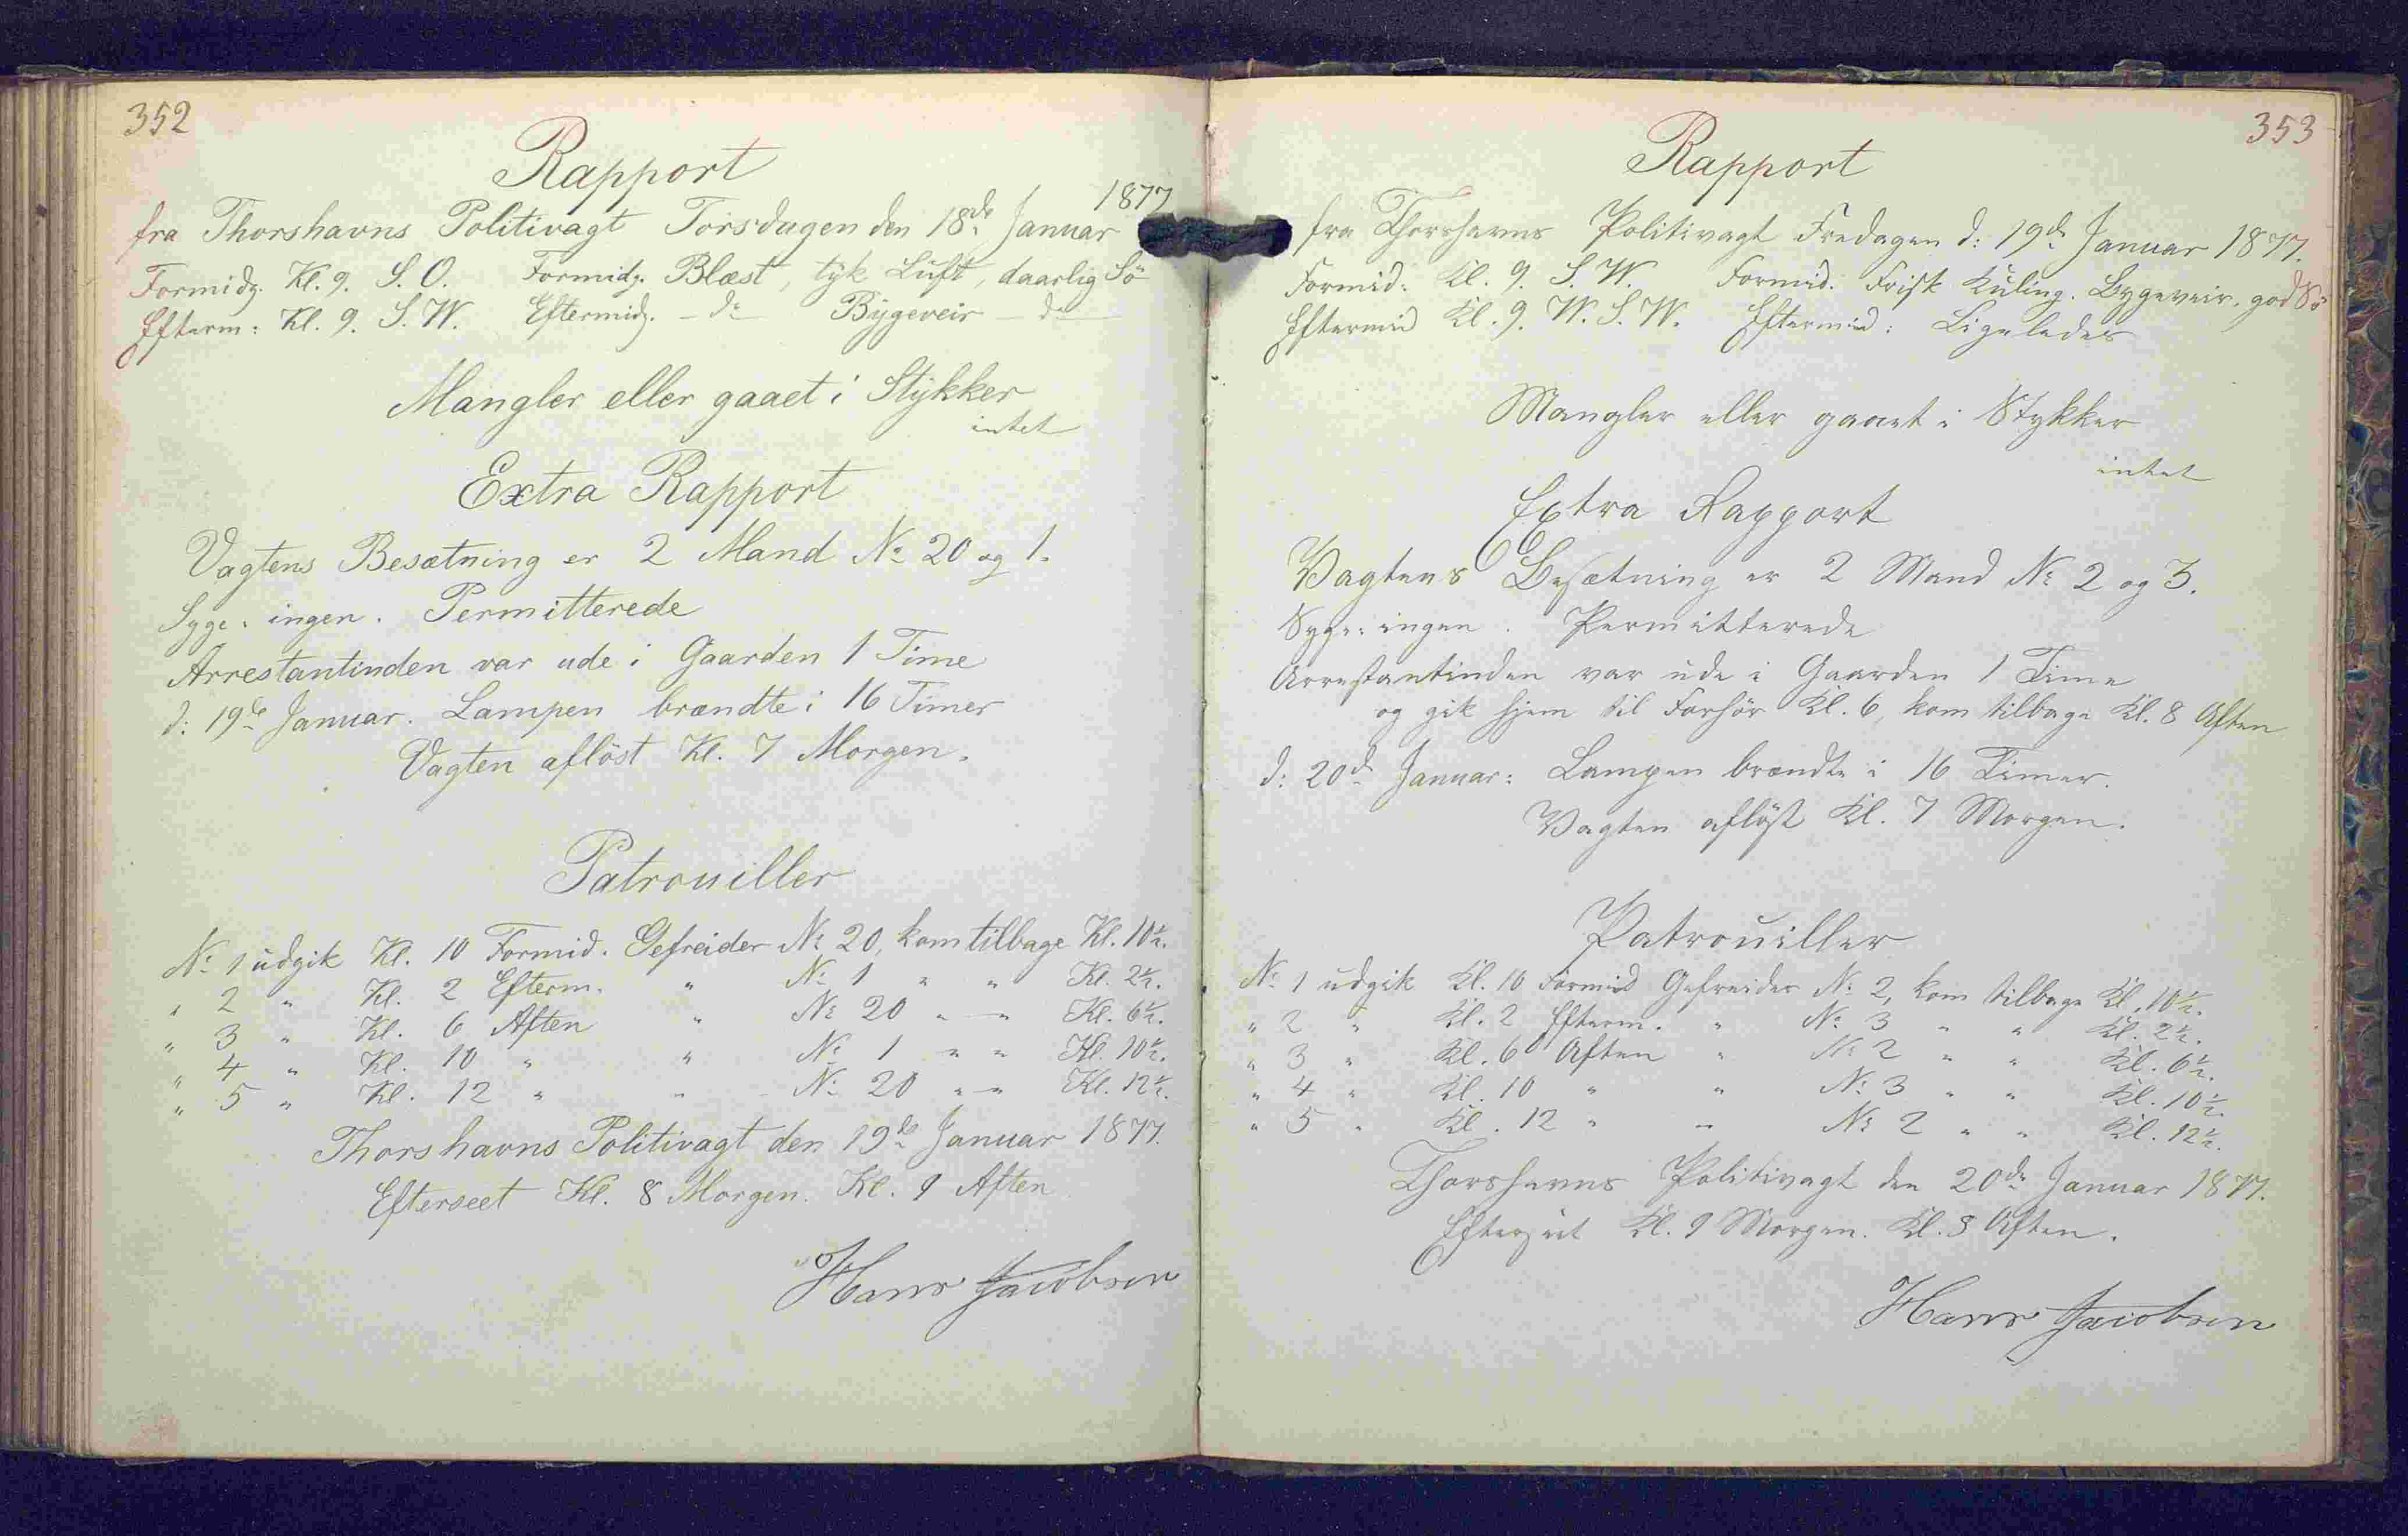 352
Rapport
1877
fra Thorshavns Politivagt Torsdagen den 18de Januar
Formidg. Kl. 9. S. O. Formidg. Blæst, tyk Luft, daarlig Sö
Efterm: Kl. 9. S. W. Eftermidg. - do - Bygeveir - do -
Mangler eller gaaet i Stykker
intet
Extra Rapport
Vagtens Besætning er 2 Mand No 20 og 1.
Syge: ingen. Permitterede
Arrestantinden var ude i Gaarden 1 Time
d: 19de Januar. Lampen brændte i 16 Timer
Vagten aflöst Kl. 7 Morgen.
Patrouiller
No 1 udgik Kl. 10 Formid. Gefreider No 20, kom tilbage Kl. 10½.
" 2 " Kl. 2 Efterm. " No 1 " " Kl. 2½.
" 3 " Kl. 6 Aften " No 20 " " Kl. 6½.
" 4 " Kl. 10 " " No 1 " " Kl. 10½.
" 5 " Kl. 12 " " No 20 " " Kl. 12½.
Thorshavns Politivagt den 19de Januar 1877.
Efterseet Kl. 8 Morgen. Kl. 9 Aften
Hans Jacobsen
353
Rapport
fra Thorshavns Politivagt Fredagen d: 19de Januar 1877.
Formid: Kl. 9. S. W. Formid. Frisk Kuling. Bygeveir, god Sö
Eftermid Kl. 9. W. S. W. Eftermid: Ligeledes
Mangler eller gaaet i Stykker
intet
Extra Rapport
Vagtens Besætning er 2 Mand No 2 og 3.
Syge: ingen. Permitterede
Arrestantinden var ude i Gaarden 1 Time
og gik hjem til Forhör Kl. 6, kom tilbage Kl. 8 Aften
d: 20de Januar: Lampen brændte i 16 Timer.
Vagten aflöst Kl. 7 Morgen.
Patrouiller
No 1 udgik Kl. 10 Formid Gefreider No 2, kom tilbage Kl. 10½.
" 2 " Kl. 2 Efterm. " No 3 " " Kl. 2½.
" 3 " Kl. 6 Aften " No 2 " " Kl. 6½.
" 4 " Kl. 10 " " No 3 " " Kl. 10½.
" 5 " Kl. 12 " " No 2 " " Kl. 12½.
Thorshavns Politivagt den 20de Januar 1877.
Efterseet Kl. 9 Morgen. Kl. 8 Aften.
Hans Jacobsen